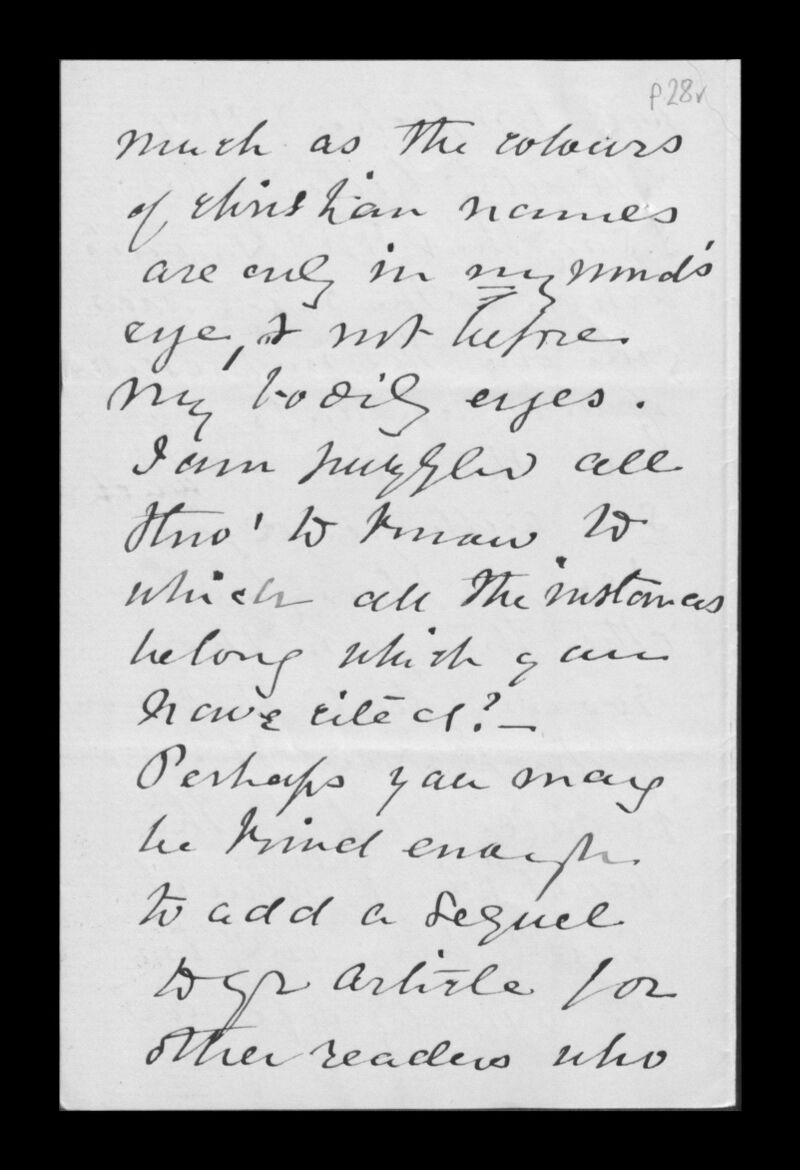 p28v
much as the colours
of christian names
are only in my mind's
eye, & not before
my bodily eyes.
I am puzzled all
tho' to know to
which all the instances
belong which you
have cited? —
Perhaps you may
be kind enough
to add a sequel
to yr article for
other readers who